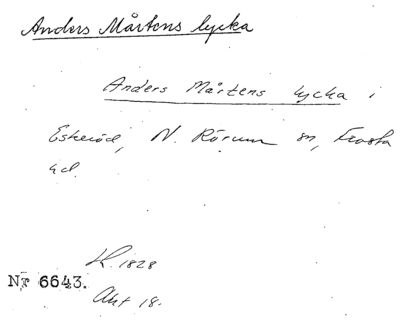 Anders Mårtens lycka
Anders Mårtens lycka i
Eskeröd, N. Rörum sn, Frosta
hd.
K. 1828
Nr 6643.
Akt 18.